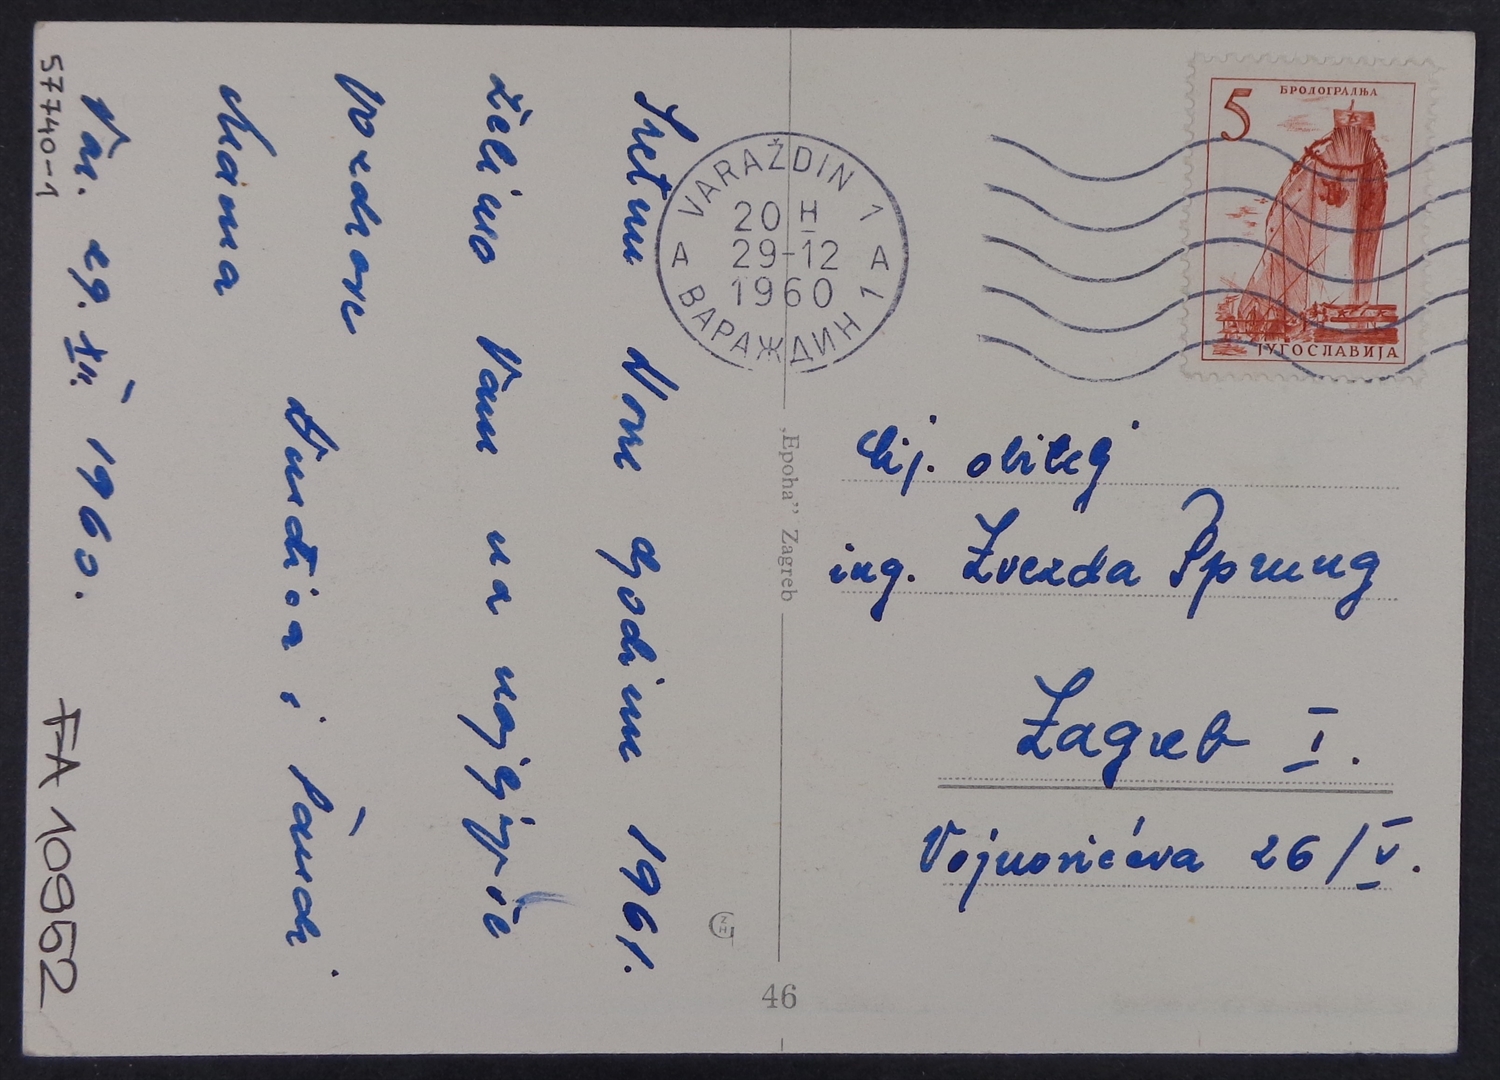 57740-1
Sretnu Novu godinu 1961.
želimo Vam uz najljepše
pozdrave
Mama
Đurđica i
Var. 29. XII. 1960.
FA 10952
VARAŽDIN 1
20 H
A 29-12 A
1960
ВАРАЖДИН 1
5 БРОДОГРАДЊА
ЈУГОСЛАВИЈА
„Epoha” Zagreb
Cij. obitelj
ing. Zvezda Sprung
Zagreb I.
Vojnovićeva 26/IV.
46